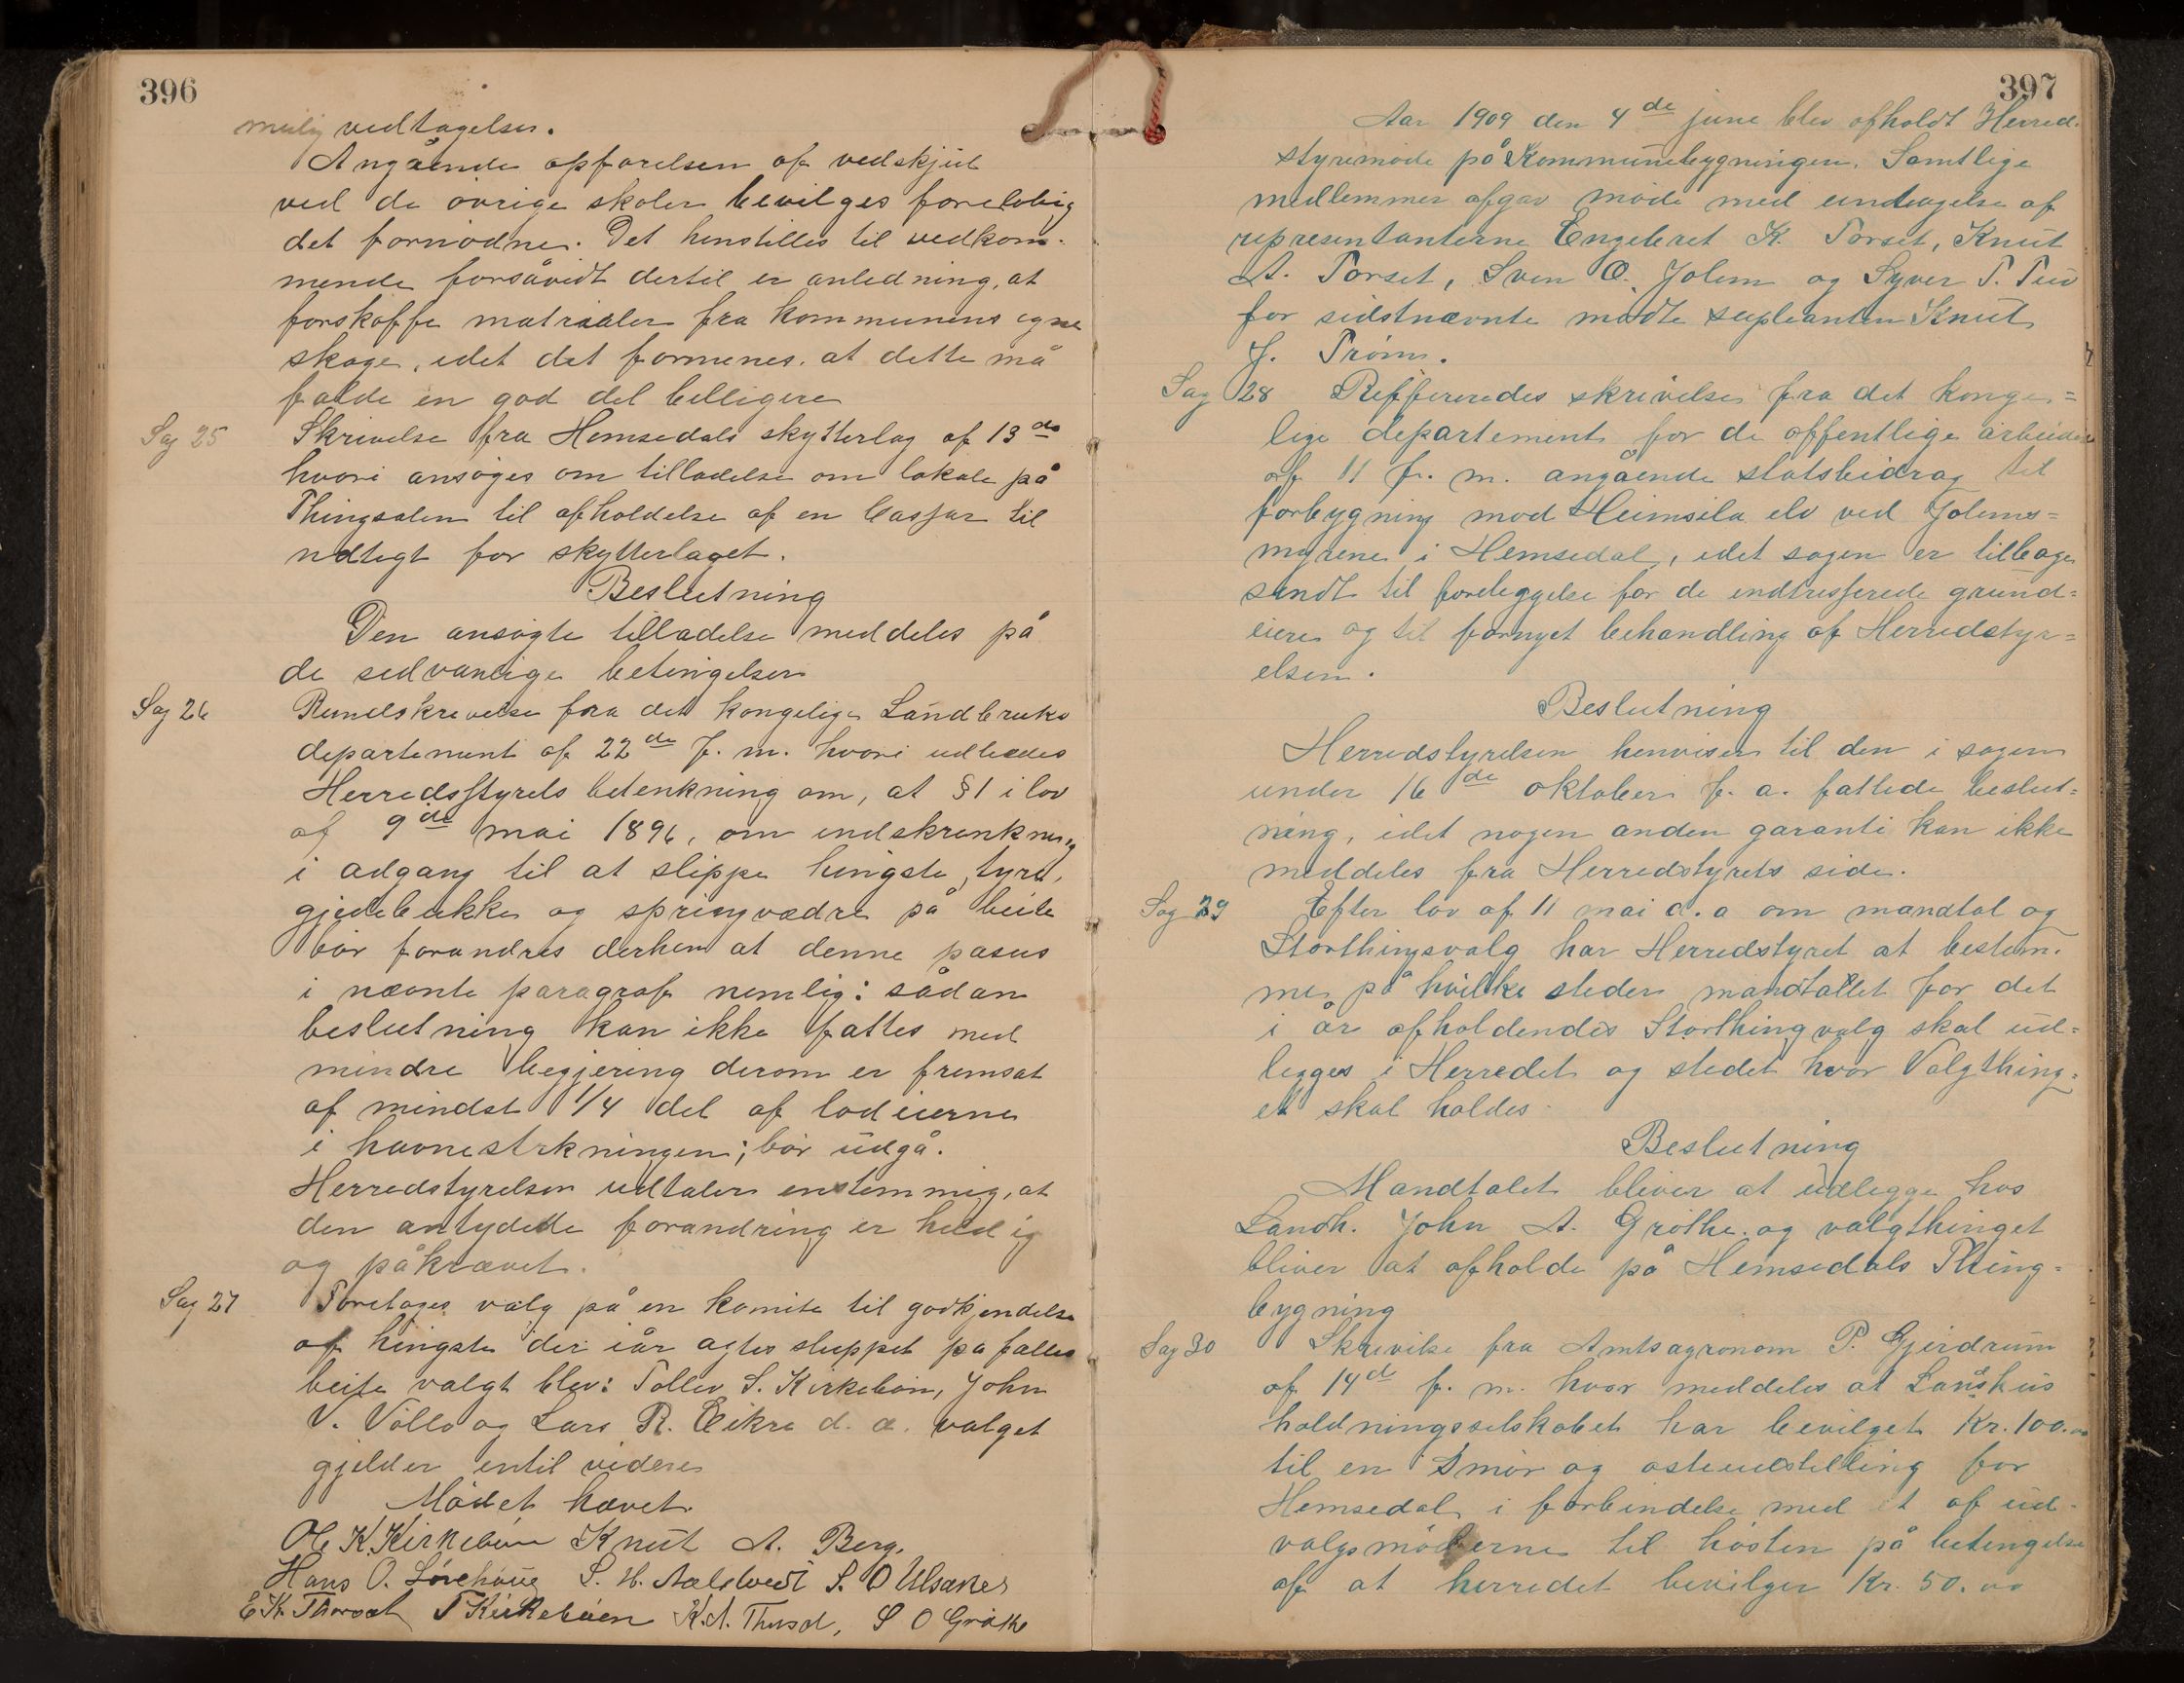 396
vedtagelser.
Angående opførelsen af vedskjul
ved de øvrige skoler bevilges forelobig
det fornødne. Det henstilles til vedkom-
mende forsåvidt dertil er anledning, at
forskaffe matrialer fra kommunens egne
skoge, idet det formenes, at dette må
falde en god del belligere
Sag 25 Skrivelse fra Hemsedals skytterlag af 13de
hvori ansøges om tilladelse om lokale på
Thingsalen til afholdelse af en Bassar til
indtegt for skytterlaget.
Beslutning
Den ansøgte tilladelse meddeles på
de sedvanlige betingelser
Sag 26 Rundskrivelse fra det kongelige Landbruks
departement af 22de f. m. hvori udbedes
Herredsstyrets betenkning om, at §1 i lov
af 9de mai 1896, om indskrenkning
i adgang til at slippe hingste, tyre,
gjedebukke og springvædre på beite
bør forandres derhen at denne pasus
i nævnte paragraf nemlig: sådan
beslutning kan ikke fattes med
mindre begjering derom er fremsat
af mindst 1/4 del af lodeierne
i havnestrkningen; bør udgå.
Herredstyrelsen udtaler enstemmig, at
den antydede forandring er heldig
og påkrævet.
Sag 27 Foretages valg på en komite til godkjendelse
af hingste der iår agtes sluppet på felles
beite valgt blev: Tollev S. Kirkebøen, John
V. Vøllo og Lars R. Eikre d. æ. valget
gjelder intil videre
Mødet hævet.
Ole K. Kirkebøen Knut A. Berg.
Hans O. S. H. S. O Ulsaker
E K. Thorset T Kirkebøen K. A. S O Grøthe
397
Aar 1909 den 4de june blev afholdt Herred-
styremøde på Kommunebygningen. Samtlige
medlemmer afgav møde med undtagelse af
representanterne Engebret K. Torset, Knut
A. Torset, Sven O. Jolem og Syver T.
for sidstnævnte mødte supleanten Knut
J. Trøim.
Sag 28 Reffereredes skrivelse fra det konge=
lige departement for de offentlige arbeider
af 11 f. m. angående statsbidrag til
forbygning mod Heimsila elv ved Jolems=
myrene i Hemsedal, idet sagen er tilbage
sendt til foreleggelse for de indtresserede grund=
eiere og til fornyet behandling af Herredstyr=
elsen.
Beslutning
Herredstyrelsen henviser til den i sagen
under 16de oktober f. a. fattede beslut=
ning, idet nogen anden garanti kan ikke
meddeles fra Herredstyrets side.
Sag 29 Efter lov af 11 mai d. a om mandtal og
Storthingsvalg har Herredstyret at bestem-
me på hvilke steder mandtallet for det
i år afholdendes Storthingvalg skal ud=
legges i Herredet og stedet hvor Valgthing=
et skal holdes
Beslutning
Mandtalet bliver at udlegge hos
Landh. John A. Grøthe. og valgthinget
bliver at afholde på Hemsedals Thing=
bygning
Sag 30 Skrivelse fra Amtsagronom P. Gjerdrum
af 14de f. m. hvor meddeles at Landhus
holdningsselskabet har bevilget Kr. 100.00
til en smør og osteudstilling for
Hemsedal i forbindelse med et af ud-
valgsmøderne til høsten på betingelse
af at herredet bevilger Kr. 50.00